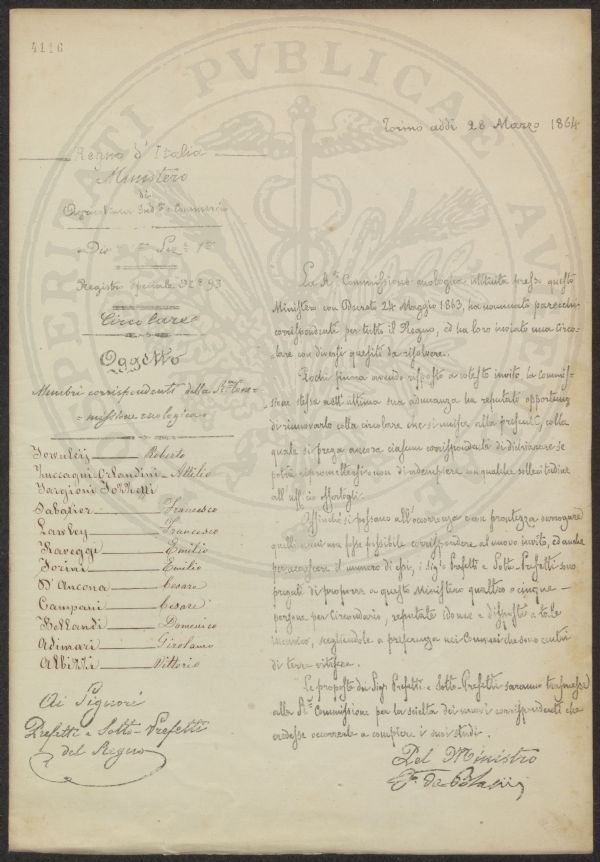 4116
PERITATI PVBLICAE AVG
Torino addì 28 Marzo 1864
Regno d'Italia
Ministero
di
Agricoltura Ind.ª e Commercio
Registro speciale N.º 93
Circolare
Oggetto
Membri corrispondenti della R.ª Com-
missione enologica
Roberto
Zuccagni-Orlandini - Attilio
Targioni Tozzetti
Sabatier Francesco
Lawley Francesco
Raveggi Emilio
Torini Emilio
D'Ancona Cesare
Campani Cesare
Hollandi Domenico
Adimari Girolamo
Albizzi Vittorio
Ai Signori
Prefetti e Sotto-Prefetti
del Regno
La R.ª Commissione enologica istituita presso questo
Ministero con Decreto 24 Maggio 1863, ha nominato parecchi
corrispondenti per tutto il Regno, ed ha loro inviato una Circo-
lare con diversi quesiti da risolvere.
Pochi finora avendo risposto a cotesto invito, la Commis-
sione stessa nell'ultima sua adunanza ha reputato opportuno
di rinnovarlo colla circolare che si unisce alla presente, colla
quale si prega ancora ciascun corrispondente di dichiarare se
potrà ripromettersi o non di adempiere con qualche sollecitudine
all'uff.º offertogli.
Affinchè si possano all'occorrenza con prontezza surrogare
quelli cui non fosse possibile corrispondere al nuovo invito, ed anche
per accrescere il numero di essi, i Sig.i Prefetti e Sotto-Prefetti sono
pregati di proporre a questo Ministero quattro o cinque
persone per Circondario, reputate idonee e disposte a tale
incarico, scegliendole a preferenza nei Comuni che sono centri
di terre vitifere.
Le proposte dei Sigg. Prefetti e Sotto-Prefetti saranno trasmesse
alla R.ª Commissione per la scelta dei nuovi corrispondenti che
credesse occorrenti a compiere i suoi studi.
Pel Ministro
F. de Blasiis